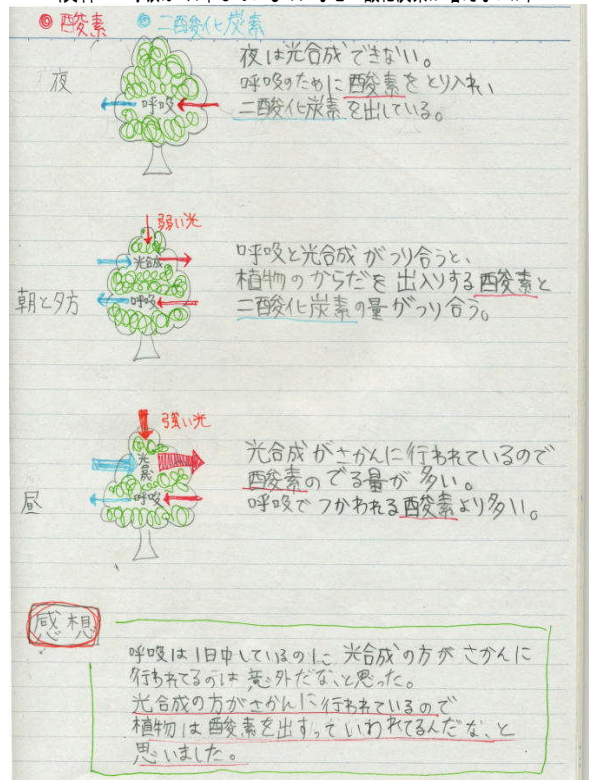 ◎酸素 ◎二酸化炭素
夜
呼吸
夜は光合成できない。
呼吸のために酸素をとり入れ、
二酸化炭素を出している。
弱い光
光合成
呼吸
朝と夕方
呼吸と光合成がつり合うと、
植物のからだを出入りする酸素と
二酸化炭素の量がつり合う。
強い光
光合成
呼吸
昼
光合成がさかんに行われているので
酸素のでる量が多い。
呼吸でつかわれる酸素より多い。
感想
呼吸は1日中しているのに光合成の方がさかんに
行われてるのは意外だな、と思った。
光合成の方がさかんに行われているので
植物は酸素を出すっていわれてるんだな、と
思いました。